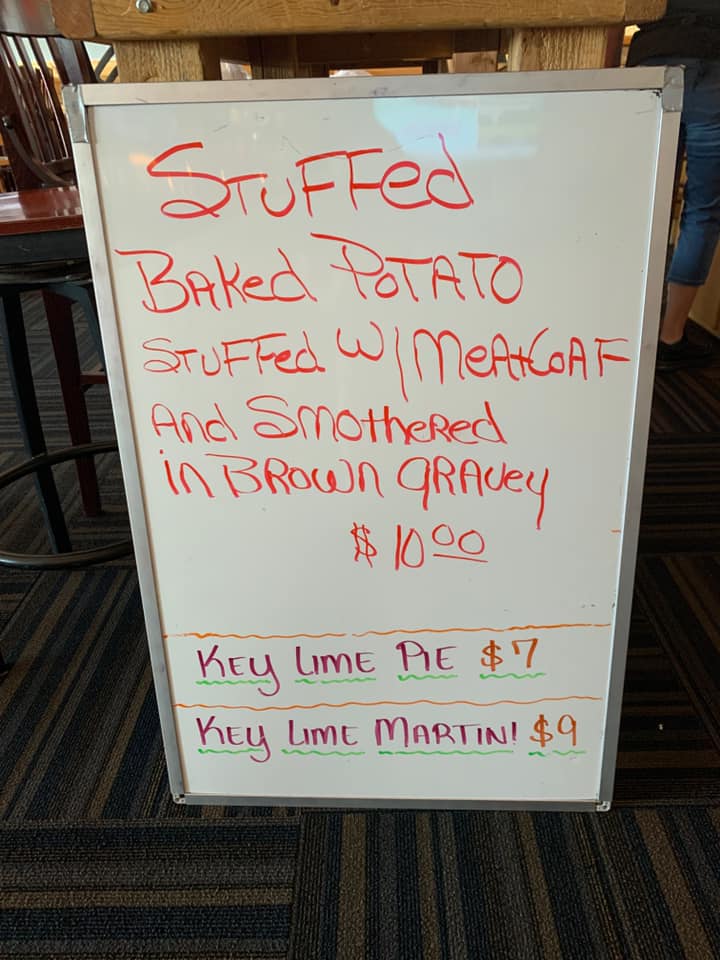 Stuffed
Baked Potato
Stuffed w/ Meatloaf
And Smothered
in Brown Gravey
$10.00
Key Lime Pie $7
Key Lime Martini $9